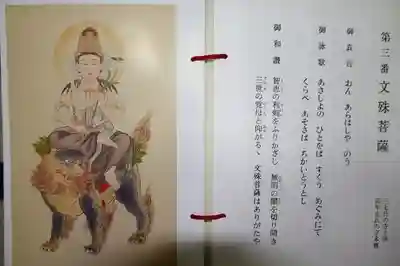 第三番 文殊菩薩
御真言 おん あらはしや のう
御詠歌 あさしよの ひとをば すくう めぐみにて
くらべ あそさば ちかいとうとし
御和讃 智恵の利剣をふりかざし 無明の闇を切り開き
三世の覚母と向がるゝ 文殊菩薩はありがたや